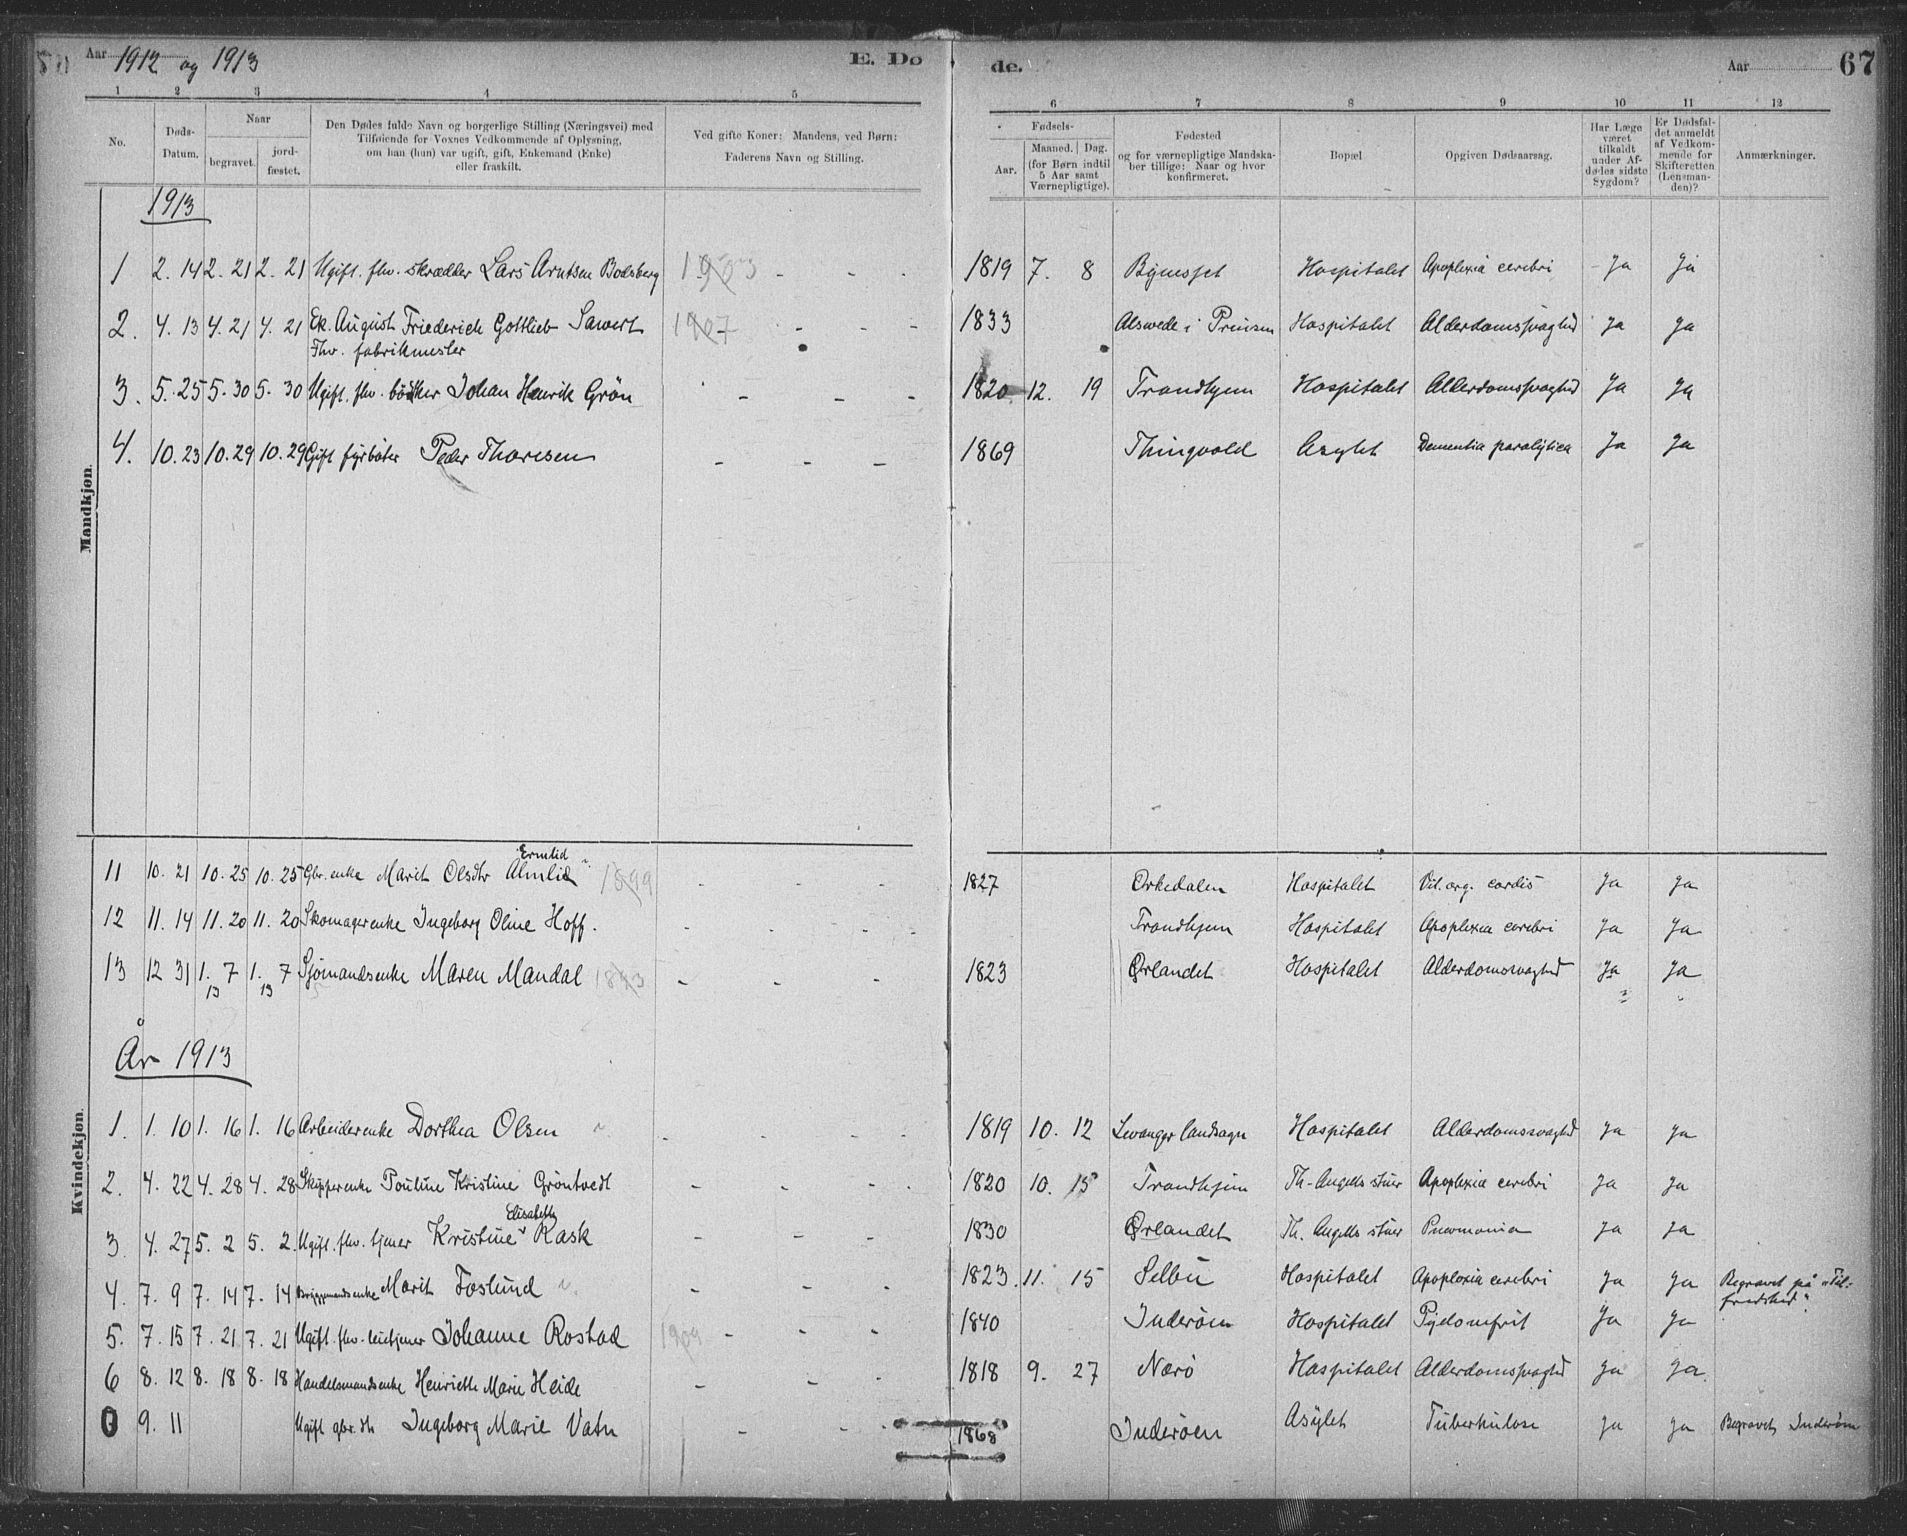 Aar 1912 og 1913
E. Dø
de.
Aar
67
1 2 3 4 5
6 7 8 9 10 11 12
No.
Døds-Datum.
Naar
begravet.
jord-fæstet.
Den Dødes fulde Navn og borgerlige Stilling (Næringsvei) med
Tilføiende for Voxnes Vedkommende af Oplysning,
om han (hun) var ugift, gift, Enkemand (Enke)
eller fraskilt.
Ved gifte Koner: Mandens, ved Børn:
Faderens Navn og Stilling.
Fødsels-
Aar.
Maaned. Dag.
(for Børn indtil
5 Aar samt
Værnepligtige).
Fødested
og for værnepligtige Mandska-
ber tillige: Naar og hvor
konfirmeret.
Bopæl
Opgiven Dødsaarsag.
Har Læge
været
tilkaldt
under Af-
dødes sidste
Sygdom?
Er Dødsfal-
det anmeldt
af Vedkom-
mende for
Skifteretten
(Lensman-
den)?
Anmærkninger.
Mandkjøn.
1913
1 2. 14 2. 21 2. 21 Ugift. fhv. skrædder Lars Arntsen Bodsberg 1903 - - - 1819 7. 8 Bynesset Hospitalet Apoplexia cerebri Ja Ja
2. 4. 13 4. 21 4. 21 Ek. August Friederich Gottlieb Sawert 1907 - - - 1833 Alswede i Preusen Hospitalet Alderdomssvaghed Ja Ja
Fhv. fabrikmester
3. 5. 25 5. 30 5. 30 Ugift. fhv. bødker Johan Henrik Grön - - - 1820 12. 19 Trondhjem Hospitalet Alderdomssvaghed Ja Ja
4. 10. 23 10. 29 10. 29 Gift fyrbøter Peder Thoresen - - - 1869 Thingvold Asylet Dementia paralytica Ja Ja
Kvindekjøn.
Ermlid
11 10. 21 10. 25 10. 25 Gbr. enke Marit Olsdtr Almlid 1899 - - - 1827 Orkedalen Hospitalet Vit. org. cordis Ja Ja
12 11. 14 11. 20 11. 20 Skomagerenke Ingeborg Oline Hoff. - - - - Trondhjem Hospitalet Apoplexia cerebri Ja Ja
13 12 31 1. 7 1. 7 Sjömandsenke Maren Mandal 1893 - - - 1823 Ørlandet Hospitalet Alderdomssvaghed Ja Ja
13 13
År 1913
1. 1. 10 1. 16 1. 16 Arbeiderenke Dorthea Olsen - - - - 1819 10. 12 Levanger landsogn Hospitalet Alderdomssvaghed Ja Ja
2. 4. 22 4. 28 4. 28 Skipperenke Pouline Kristine Gröntvedt - - - - 1820 10. 15 Trondhjem Th. Angells stuer Apoplexia cerebri Ja Ja
Elisabeth
3. 4. 27 5. 2 5. 2. Ugift. fhv. tjener Kristine Rask - - - 1830 Ørlandet Th. Angells stuer Pneumonia Ja Ja
4. 7. 9 7. 14 7. 14 Bryggemandsenke Marit Foslund - - - 1823. 11. 15 Selbu Hospitalet Apoplexia cerebri Ja Ja Begravet på "Til-
fredshed".
5. 7. 15 7. 21 7. 21 Ugift. fhv. Johanne Rostad 1909 - - - 1840 Inderøen Hospitalet Pyelonefrit Ja Ja
6 8. 12 8. 18 8. 18 Handelsmandsenke Henriette Marie Heide - - - 1818 9. 27 Nærö Hospitalet Alderdomssvaghed Ja Ja
0 9. 11 Ugift gbr. dt. Ingeborg Marie Vatn - - - 1868 Inderøen Asylet Tuberkulose Ja Ja Begravet Inderøen